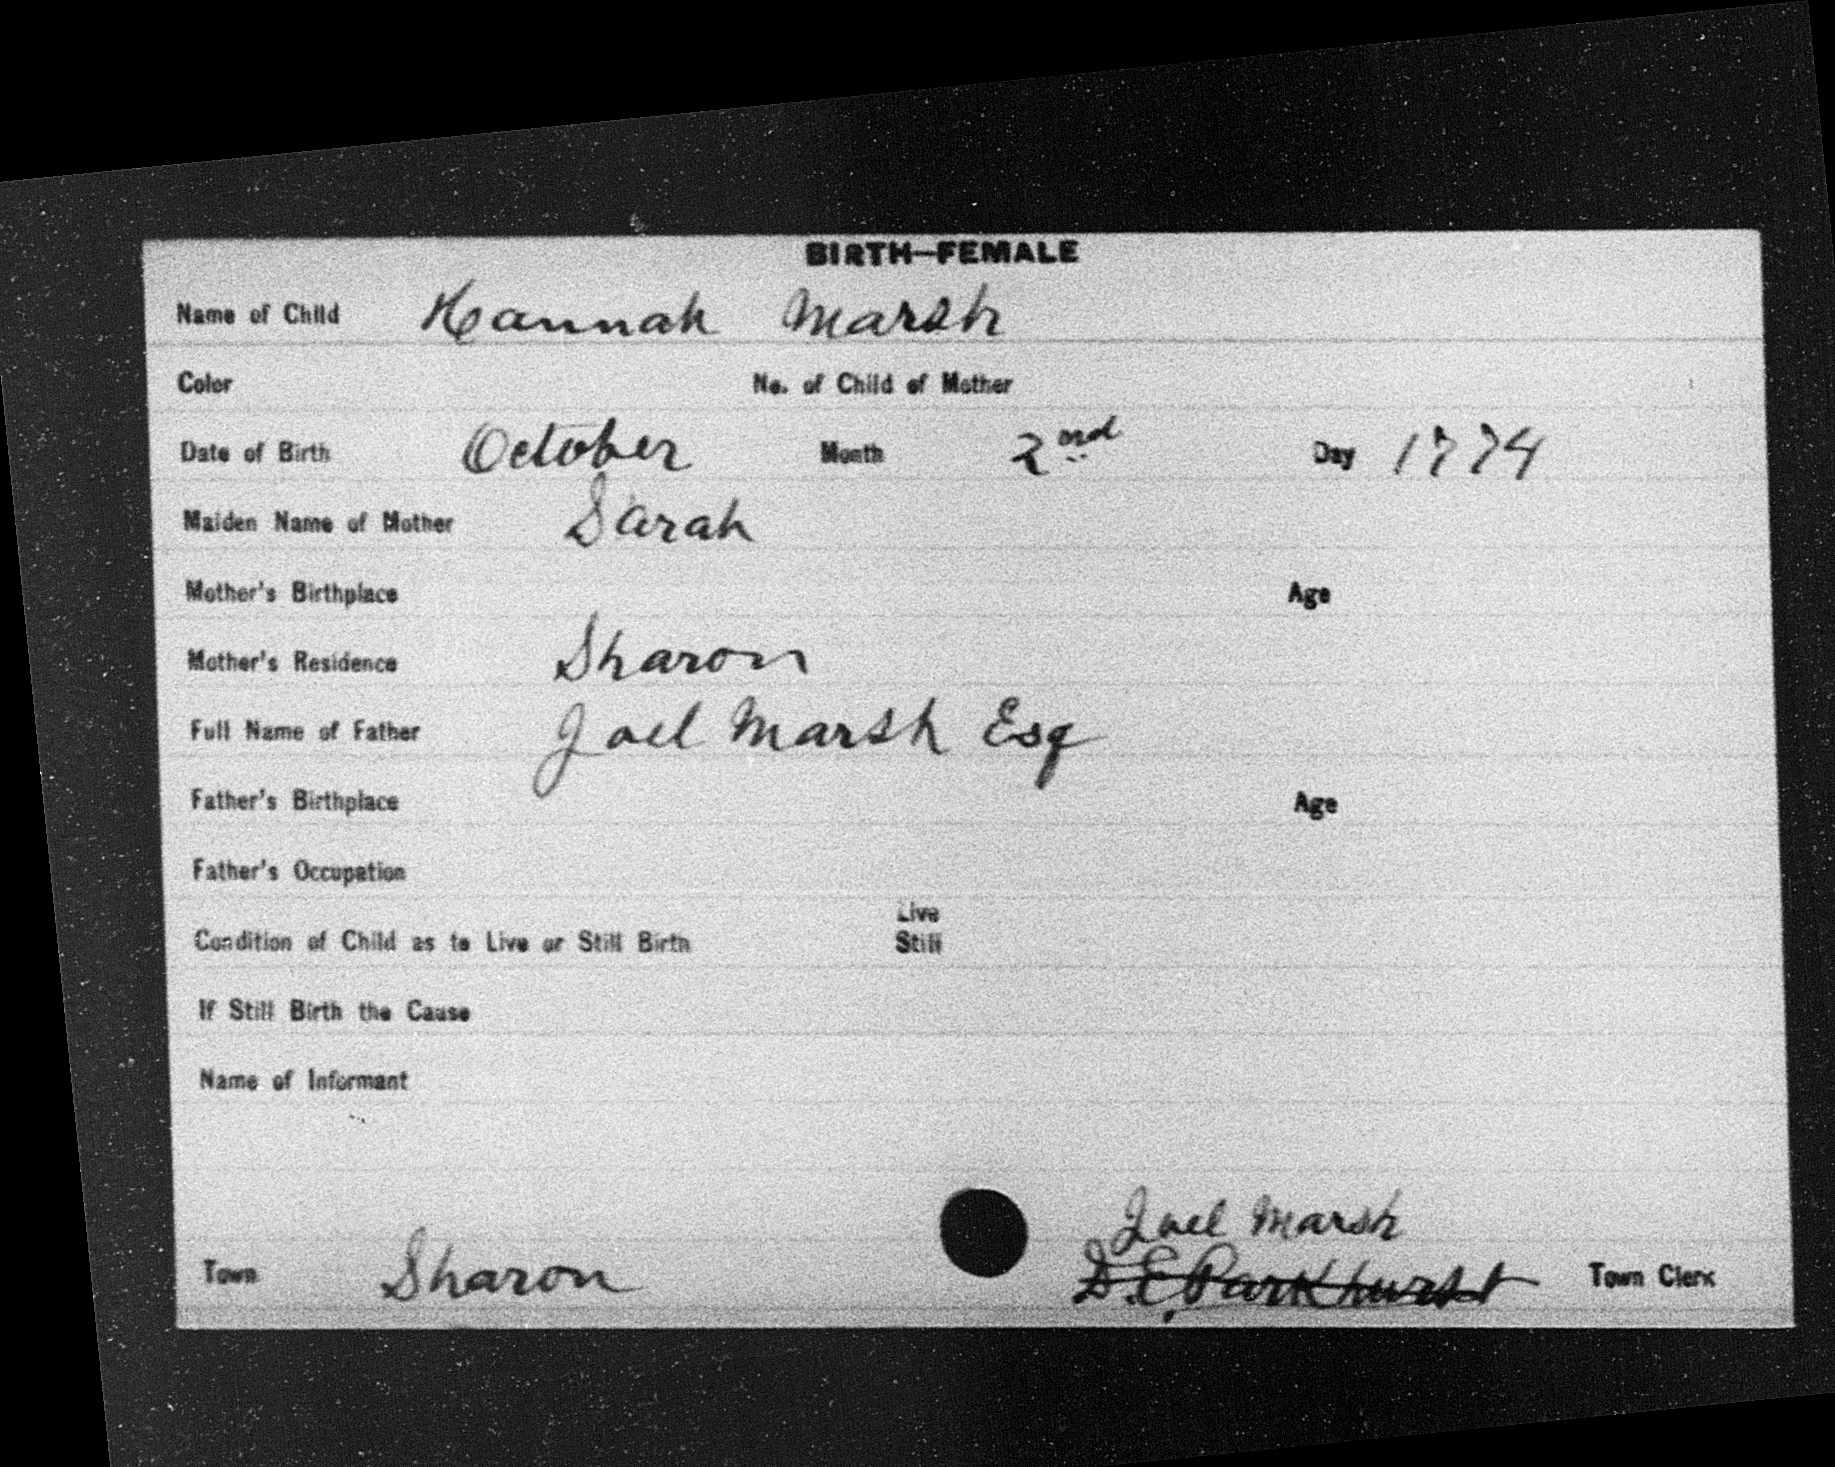 BIRTH—FEMALE
Name of Child Hannah Marsh
Color No. of Child of Mother
Date of Birth October Month 2nd Day 1774
Maiden Name of Mother Sarah
Mother's Birthplace Age
Mother's Residence Sharon
Full Name of Father Joel Marsh Esq
Father's Birthplace Age
Father's Occupation
Live
Condition of Child as to Live or Still Birth Still
If Still Birth the Cause
Name of Informant
Joel Marsh
Town Sharon D. E. Parkhurst Town Clerk